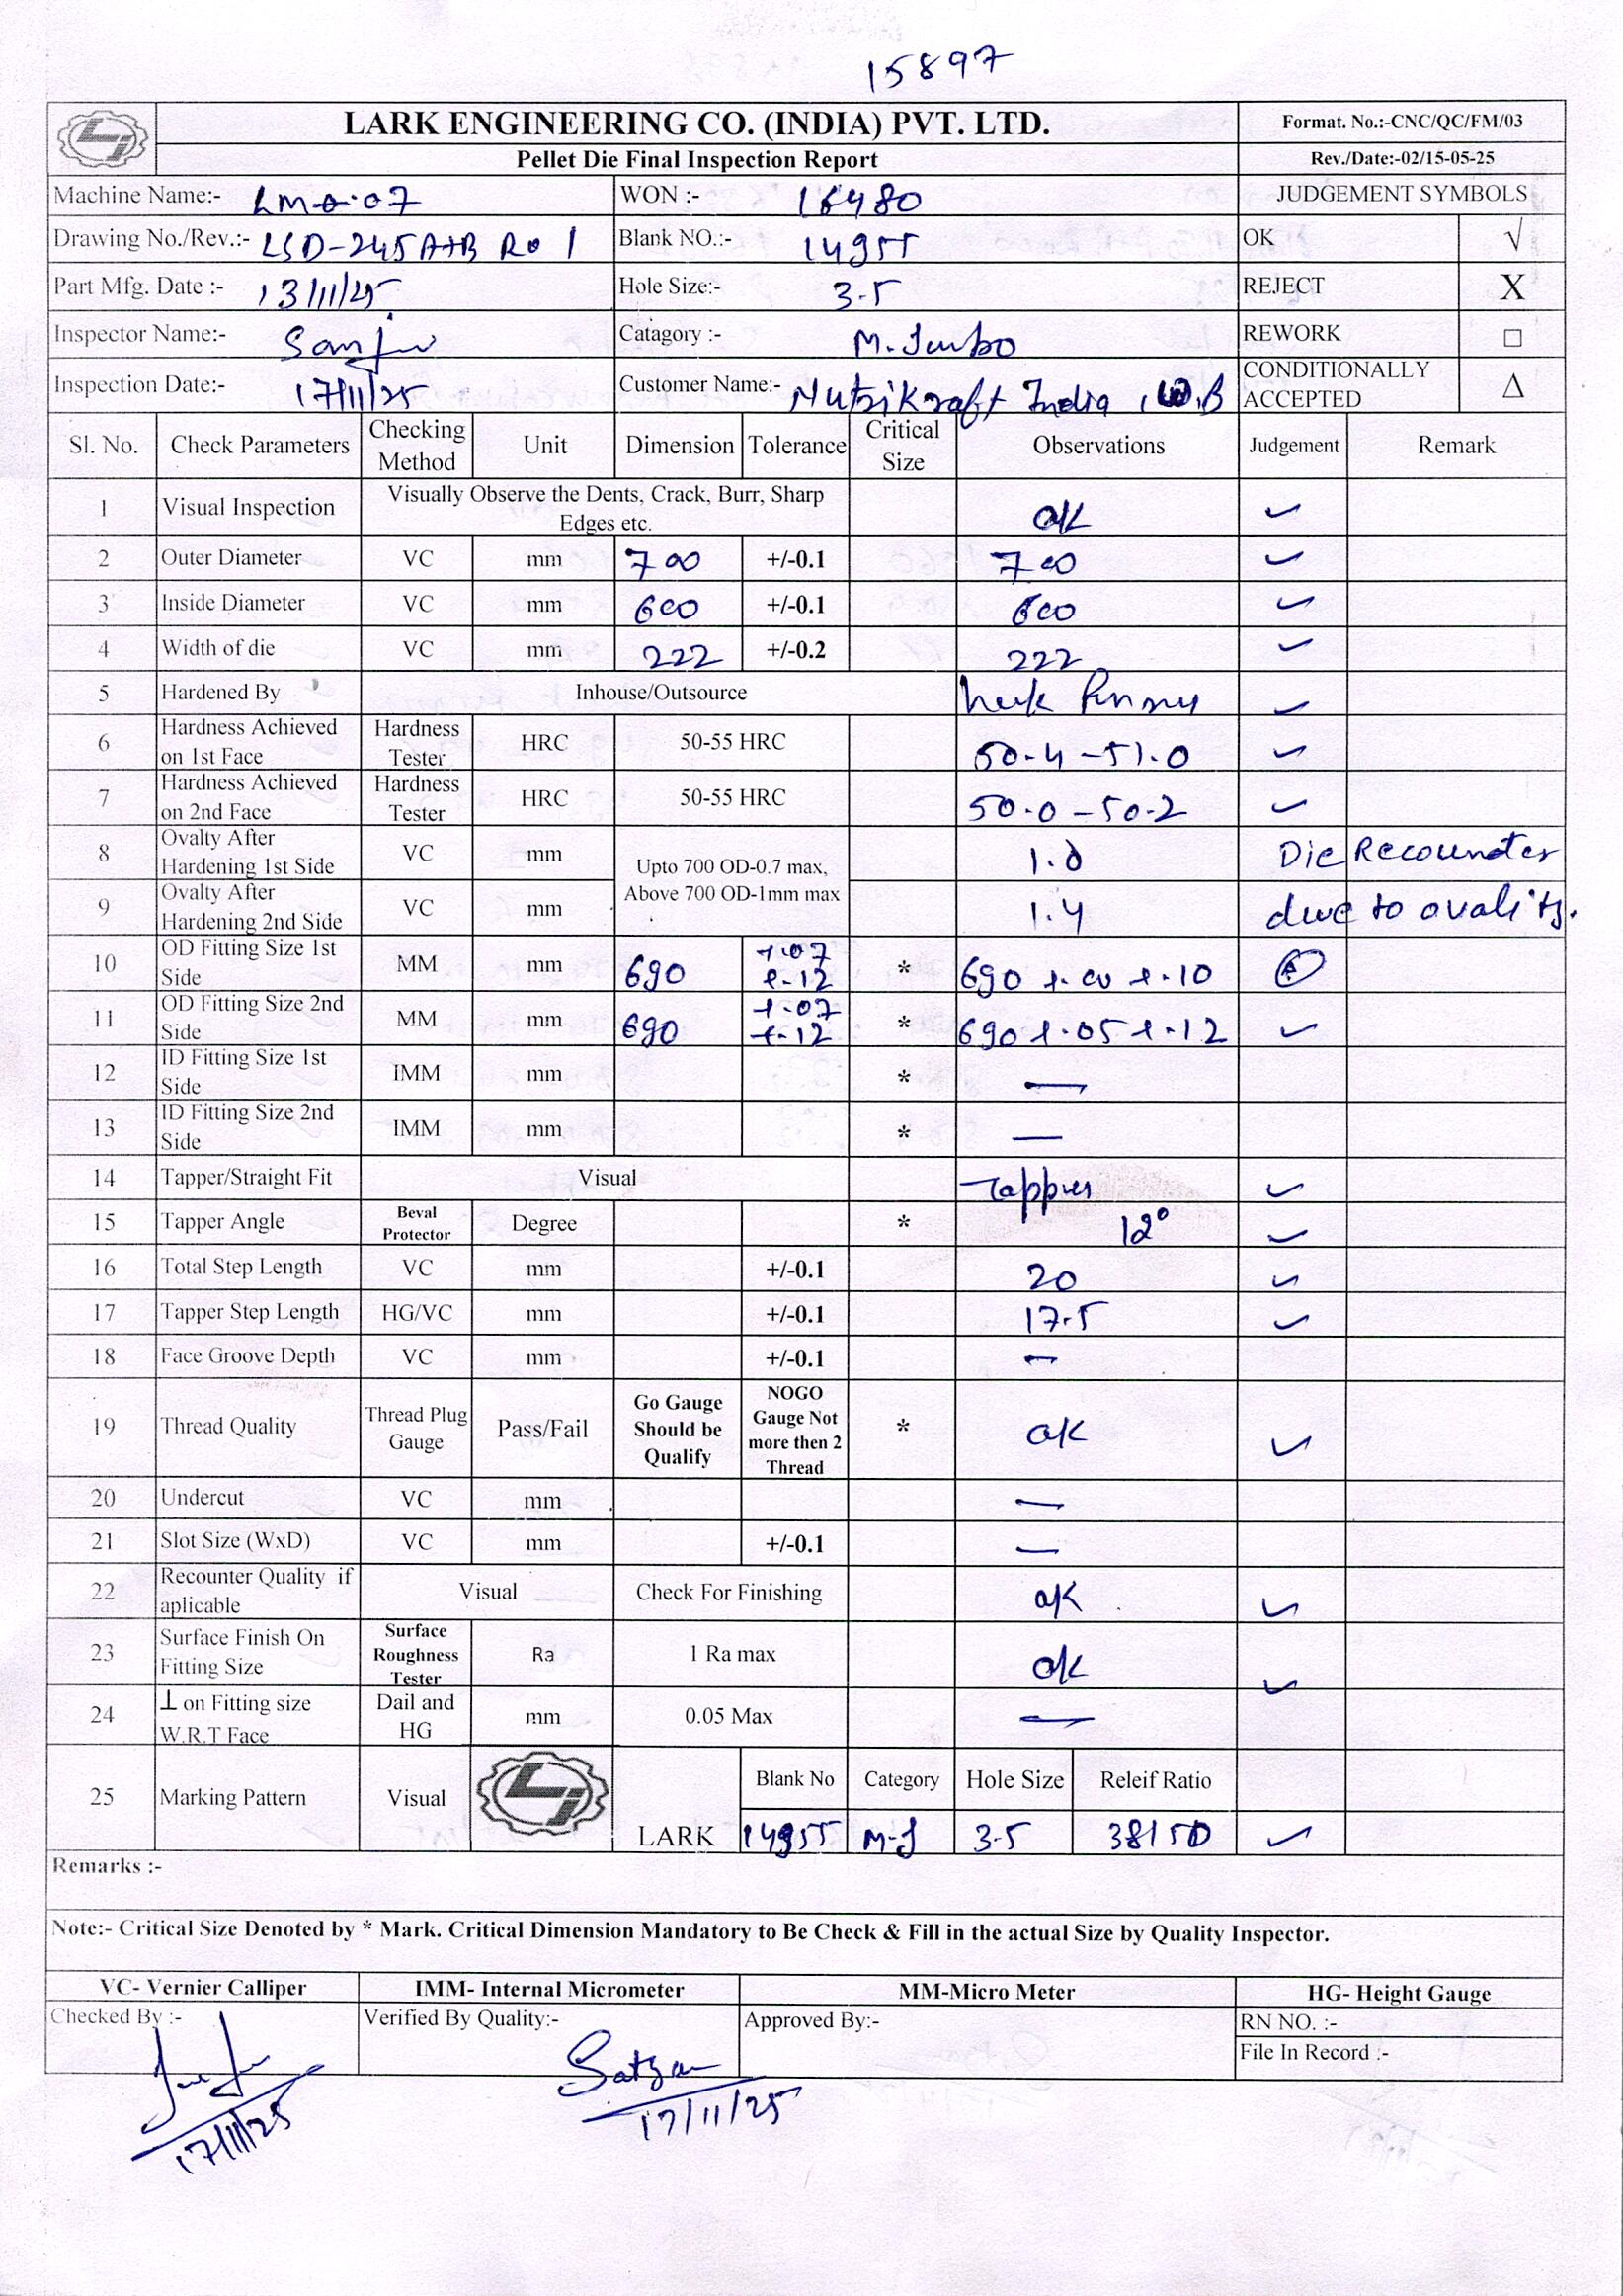 15897
LARK ENGINEERING CO. (INDIA) PVT. LTD. Format. No.:-CNC/QC/FM/03
Pellet Die Final Inspection Report Rev./Date:-02/15-05-25
Machine Name:- WON :- 16480 JUDGEMENT SYMBOLS
Drawing No./Rev.:- LSD-245 A+B R0 1 Blank NO.:- 14955 OK √
Part Mfg. Date :- 13/11/25 Hole Size:- 3.5 REJECT X
Inspector Name:- Catagory :- M. Jumbo REWORK □
Inspection Date:- 17/11/25 Customer Name:- Nutrikraft India, W.B CONDITIONALLY ACCEPTED Δ
Sl. No. Check Parameters Checking Method Unit Dimension Tolerance Critical Size Observations Judgement Remark
1 Visual Inspection Visually Observe the Dents, Crack, Burr, Sharp Edges etc. ok ✓
2 Outer Diameter VC mm 700 +/-0.1 700 ✓
3 Inside Diameter VC mm 600 +/-0.1 600 ✓
4 Width of die VC mm 222 +/-0.2 222 ✓
5 Hardened By Inhouse/Outsource ✓
6 Hardness Achieved on 1st Face Hardness Tester HRC 50-55 HRC 50.4 - 51.0 ✓
7 Hardness Achieved on 2nd Face Hardness Tester HRC 50-55 HRC 50.0 - 50.2 ✓
8 Ovalty After Hardening 1st Side VC mm Upto 700 OD-0.7 max, Above 700 OD-1mm max Die Recounter
9 Ovalty After Hardening 2nd Side VC mm 1.4 due to ovality.
10 OD Fitting Size 1st Side MM mm 690 +.07 +.12 * 690 +.10
11 OD Fitting Size 2nd Side MM mm 690 +.07 +.12 * 690 +.05 +.12 ✓
12 ID Fitting Size 1st Side IMM mm * —
13 ID Fitting Size 2nd Side IMM mm * —
14 Tapper/Straight Fit Visual Tapper ✓
15 Tapper Angle Beval Protector Degree * 12° ✓
16 Total Step Length VC mm +/-0.1 20 ✓
17 Tapper Step Length HG/VC mm +/-0.1 17.5 ✓
18 Face Groove Depth VC mm +/-0.1 —
19 Thread Quality Thread Plug Gauge Pass/Fail Go Gauge Should be Qualify NOGO Gauge Not more then 2 Thread * ok ✓
20 Undercut VC mm —
21 Slot Size (WxD) VC mm +/-0.1 —
22 Recounter Quality if aplicable Visual Check For Finishing ok ✓
23 Surface Finish On Fitting Size Surface Roughness Tester Ra 1 Ra max ok ✓
24 ⊥ on Fitting size W.R.T Face Dail and HG mm 0.05 Max —
25 Marking Pattern Visual LARK Blank No Category Hole Size Releif Ratio
14955 M-J 3.5 ✓
Remarks :-
Note:- Critical Size Denoted by * Mark. Critical Dimension Mandatory to Be Check & Fill in the actual Size by Quality Inspector.
VC- Vernier Calliper IMM- Internal Micrometer MM-Micro Meter HG- Height Gauge
Checked By :- Verified By Quality:- Approved By:- RN NO. :-
File In Record :-
Satyam
17/11/25 17/11/25